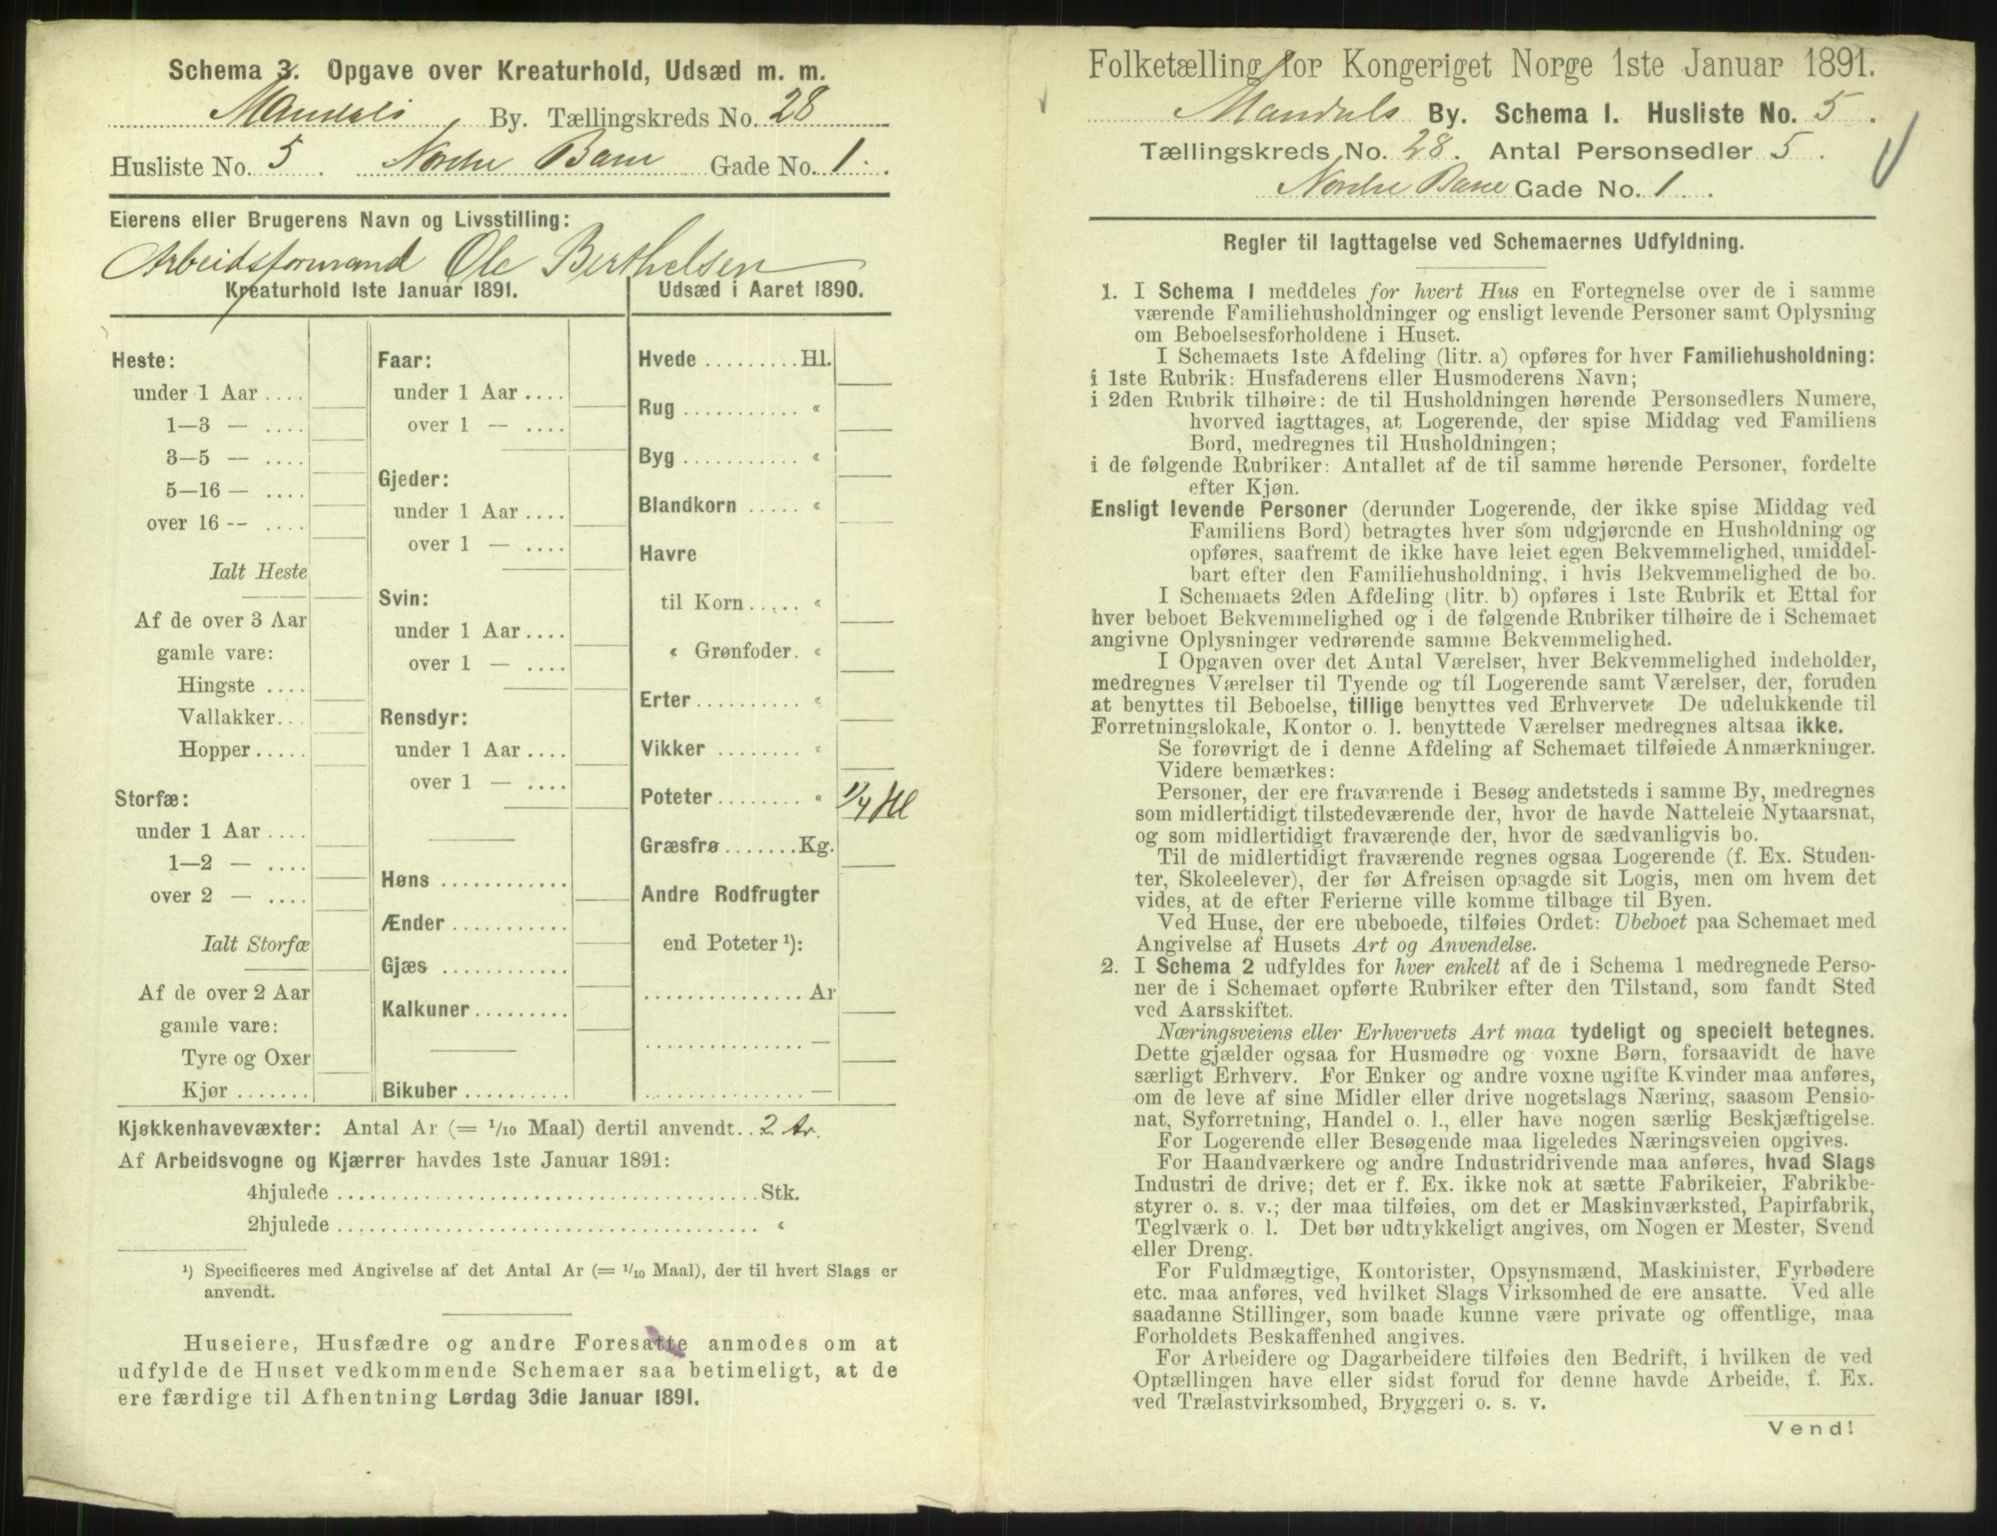 Schema 3. Opgave over Kreaturhold, Udsæd m. m.
Mandals By. Tællingskreds No. 28
Husliste No. 5. Nordre Bane Gade No. 1.
Eierens eller Brugerens Navn og Livsstilling:
Arbeidsformand Ole Berthelsen
Kreaturhold 1ste Januar 1891.
Heste:
under 1 Aar ....
1—3 — ....
3—5 — ....
5—16 — ....
over 16 -- ....
Ialt Heste
Af de over 3 Aar
gamle vare:
Hingste ....
Vallakker...
Hopper.....
Storfæ:
under 1 Aar ....
1—2 — ....
over 2 — ....
Ialt Storfæ
Af de over 2 Aar
gamle vare:
Tyre og Oxer
Kjør .......
Faar:
under 1 Aar ....
over 1 — ....
Gjeder:
under 1 Aar ....
over 1 — ....
Svin:
under 1 Aar ....
over 1 — ....
Rensdyr:
under 1 Aar ....
over 1 — ....
Høns ............
Ænder ...........
Gjæs ............
Kalkuner.........
Bikuber ..........
Udsæd i Aaret 1890.
Hvede .........Hl.
Rug ........... «
Byg ........... «
Blandkorn ..... «
Havre
til Korn ..... «
« Grønfoder. «
Erter.......... «
Vikker ........ «
Poteter........ « 1/4 Hl
Græsfrø .......Kg.
Andre Rodfrugter
end Poteter ¹):
............... Ar
............... —
............... —
Kjøkkenhavevæxter: Antal Ar (= 1/10 Maal) dertil anvendt.. 2 Ar.
Af Arbeidsvogne og Kjærrer havdes 1ste Januar 1891:
4hjulede ....................................Stk.
2hjulede .................................... «
¹) Specificeres med Angivelse af det Antal Ar (= 1/10 Maal), der til hvert Slags er
anvendt.
Huseiere, Husfædre og andre Foresatte anmodes om at
udfylde de Huset vedkommende Schemaer saa betimeligt, at de
ere færdige til Afhentning Lørdag 3die Januar 1891.
Folketælling for Kongeriget Norge 1ste Januar 1891.
Mandals By. Schema I. Husliste No. 5.
Tællingskreds No. 28. Antal Personsedler 5.
Nordre Bane Gade No. 1.
Regler til Iagttagelse ved Schemaernes Udfyldning.
1. I Schema 1 meddeles for hvert Hus en Fortegnelse over de i samme
værende Familiehusholdninger og ensligt levende Personer samt Oplysning
om Beboelsesforholdene i Huset.
I Schemaets 1ste Afdeling (litr. a) opføres for hver Familiehusholdning:
i 1ste Rubrik: Husfaderens eller Husmoderens Navn;
i 2den Rubrik tilhøire: de til Husholdningen hørende Personsedlers Numere,
hvorved iagttages, at Logerende, der spise Middag ved Familiens
Bord, medregnes til Husholdningen;
i de følgende Rubriker: Antallet af de til samme hørende Personer, fordelte
efter Kjøn.
Ensligt levende Personer (derunder Logerende, der ikke spise Middag ved
Familiens Bord) betragtes hver som udgjørende en Husholdning og
opføres, saafremt de ikke have leiet egen Bekvemmelighed, umiddel-
bart efter den Familiehusholdning, i hvis Bekvemmelighed de bo.
I Schemaets 2den Afdeling (litr. b) opføres i 1ste Rubrik et Ettal for
hver beboet Bekvemmelighed og i de følgende Rubriker tilhøire de i Schemaet
angivne Oplysninger vedrørende samme Bekvemmelighed.
I Opgaven over det Antal Værelser, hver Bekvemmelighed indeholder,
medregnes Værelser til Tyende og til Logerende samt Værelser, der, foruden
at benyttes til Beboelse, tillige benyttes ved Erhvervet. De udelukkende til
Forretningslokale, Kontor o. l. benyttede Værelser medregnes altsaa ikke.
Se forøvrigt de i denne Afdeling af Schemaet tilføiede Anmærkninger.
Videre bemærkes:
Personer, der ere fraværende i Besøg andetsteds i samme By, medregnes
som midlertidigt tilstedeværende der, hvor de havde Natteleie Nytaarsnat,
og som midlertidigt fraværende der, hvor de sædvanligvis bo.
Til de midlertidigt fraværende regnes ogsaa Logerende (f. Ex. Studen-
ter, Skoleelever), der før Afreisen opsagde sit Logis, men om hvem det
vides, at de efter Ferierne ville komme tilbage til Byen.
Ved Huse, der ere ubeboede, tilføies Ordet: Ubeboet paa Schemaet med
Angivelse af Husets Art og Anvendelse.
2. I Schema 2 udfyldes for hver enkelt af de i Schema 1 medregnede Perso-
ner de i Schemaet opførte Rubriker efter den Tilstand, som fandt Sted
ved Aarsskiftet.
Næringsveiens eller Erhvervets Art maa tydeligt og specielt betegnes.
Dette gjælder ogsaa for Husmødre og voxne Børn, forsaavidt de have
særligt Erhverv. For Enker og andre voxne ugifte Kvinder maa anføres,
om de leve af sine Midler eller drive nogetslags Næring, saasom Pensio-
nat, Syforretning, Handel o. l., eller have nogen særlig Beskjæftigelse.
For Logerende eller Besøgende maa ligeledes Næringsveien opgives.
For Haandværkere og andre Industridrivende maa anføres, hvad Slags
Industri de drive; det er f. Ex. ikke nok at sætte Fabrikeier, Fabrikbe-
styrer o. s. v.; der maa tilføies, om det er Maskinværksted, Papirfabrik,
Teglværk o. l. Det bør udtrykkeligt angives, om Nogen er Mester, Svend
eller Dreng.
For Fuldmægtige, Kontorister, Opsynsmænd, Maskinister, Fyrbødere
etc. maa anføres, ved hvilket Slags Virksomhed de ere ansatte. Ved alle
saadanne Stillinger, som baade kunne være private og offentlige, maa
Forholdets Beskaffenhed angives.
For Arbeidere og Dagarbeidere tilføies den Bedrift, i hvilken de ved
Optællingen have eller sidst forud for denne havde Arbeide, f. Ex.
ved Trælastvirksomhed, Bryggeri o. s. v.
Vend!